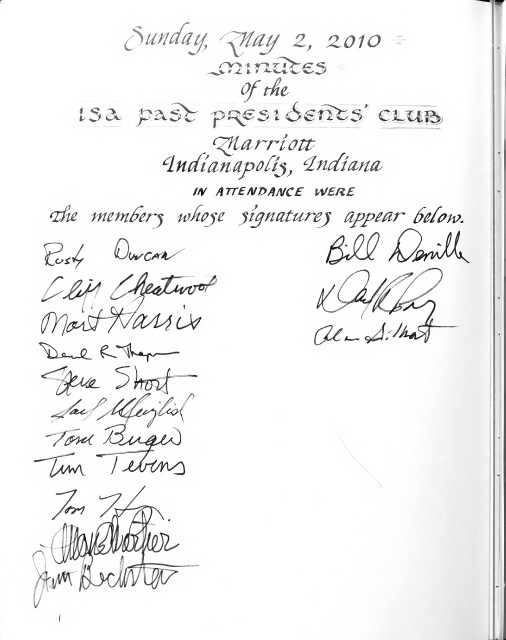 Sunday, May 2, 2010
MINUTES
Of the
ISA PAST PRESIDENTS' CLUB
Marriott
Indianapolis, Indiana
IN ATTENDANCE WERE
The members whose signatures appear below.
Rusty Duncan
Cliff Cheatwood
Mort Harris
R.
Steve Short
Tom Burger
Tim Tevens
Tom
Jim
Bill Deville